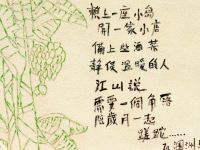 楼上一座小岛
開一家小店
備上些酒菜
靜候温暖的人
江山説
需要一個角落
陪歲月一起
蹉跎……